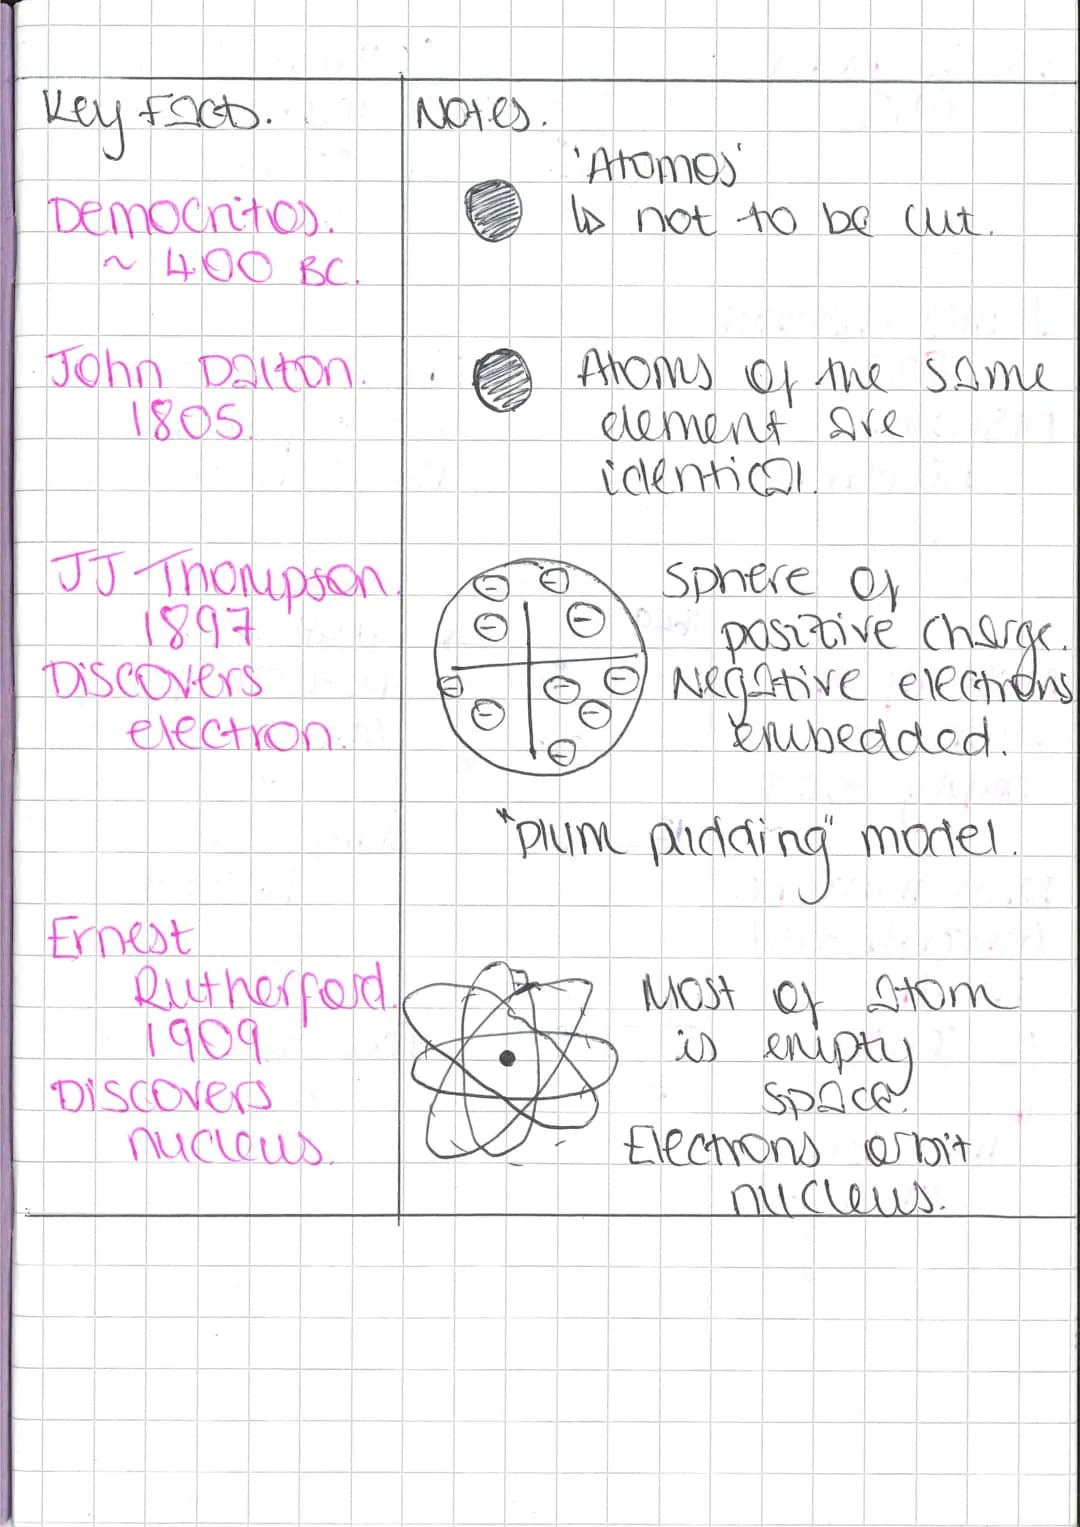 Key Facts.
Notes.
'Atomos'
↳ not to be cut.
Democritos.
~ 400 BC.
John Dalton.
1805.
Atoms of the same
element are
identical.
JJ Thompson.
1897
Discovers
electron.
Sphere of
positive charge.
Negative electrons
embedded.
"plum pudding" model.
Ernest
Rutherford.
1909
Discovers
nucleus.
Most of atom
is empty
space.
Electrons orbit
nucleus.